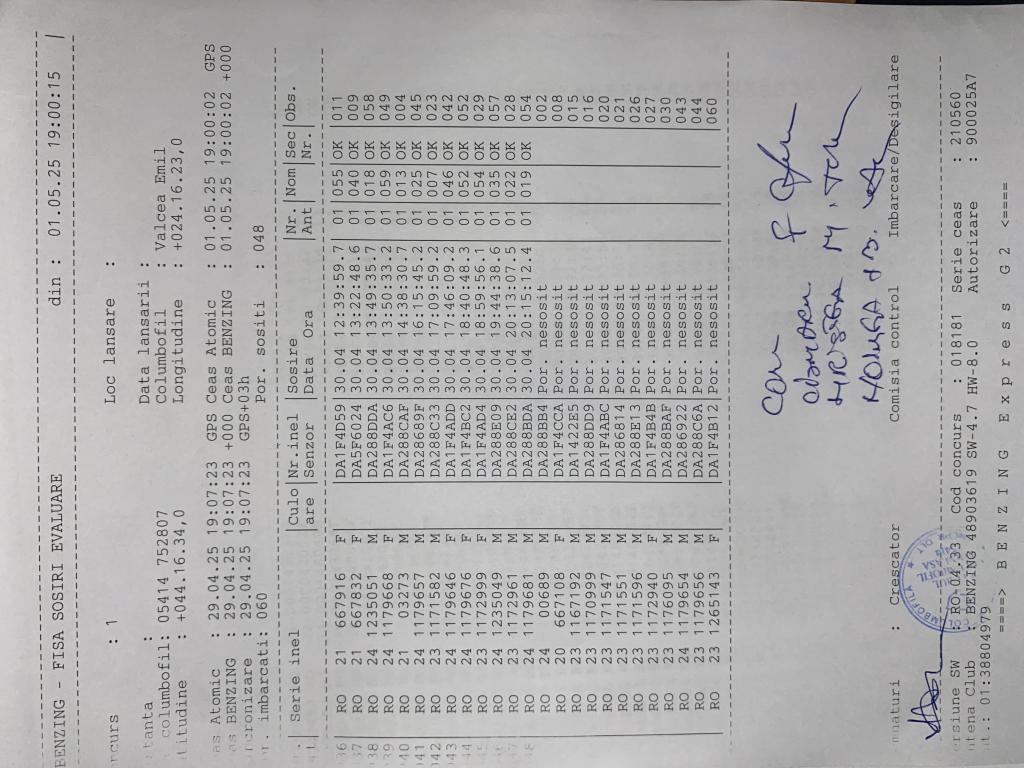 BENZING - FISA SOSIRI EVALUARE din : 01.05.25 19:00:15 |
ncurs : 1 Loc lansare :
tanta : Data lansarii :
columbofil: 05414 752807 Columbofil : Valcea Emil
titudine : +044.16.34,0 Longitudine : +024.16.23,0
as Atomic : 29.04.25 19:07:23 GPS Ceas Atomic : 01.05.25 19:00:02 GPS
as BENZING : 29.04.25 19:07:23 +000 Ceas BENZING : 01.05.25 19:00:02 +000
ncronizare : 29.04.25 19:07:23 GPS+03h
r. imbarcati: 060 Por. sositi : 048
Serie inel |Culo|Nr.inel |Sosire |Nr.|Nom|Sec|Obs.
|are |Senzor |Data Ora |Ant| |Nr.|
36 RO 21 667916 F DA1F4D59 30.04 12:39:59.7 01 055 OK 011
37 RO 21 667832 F DA5F6024 30.04 13:22:48.6 01 040 OK 009
38 RO 24 1235051 M DA288DDA 30.04 13:49:35.7 01 018 OK 058
39 RO 24 1179668 F DA1F4AC6 30.04 13:50:33.2 01 059 OK 049
040 RO 21 03273 M DA288CAF 30.04 14:38:30.7 01 013 OK 004
041 RO 24 1179657 M DA28689F 30.04 16:15:45.2 01 025 OK 045
042 RO 23 1171582 M DA288C33 30.04 17:09:59.2 01 007 OK 023
043 RO 24 1179646 F DA1F4ADD 30.04 17:46:09.2 01 046 OK 042
44 RO 24 1179676 F DA1F4BC2 30.04 18:40:48.3 01 052 OK 052
45 RO 23 1172999 F DA1F4AD4 30.04 18:59:56.1 01 054 OK 029
46 RO 24 1235049 M DA288E09 30.04 19:44:38.6 01 035 OK 057
47 RO 23 1172961 M DA288CE2 30.04 20:13:07.5 01 022 OK 028
48 RO 24 1179681 M DA288BBA 30.04 20:15:12.4 01 019 OK 054
RO 24 00689 M DA288BB4 Por. nesosit 002
RO 20 667108 F DA1F4CCA Por. nesosit 008
RO 23 1167192 M DA1422E5 Por. nesosit 015
RO 23 1170999 M DA288DD9 Por. nesosit 016
RO 23 1171547 F DA1F4ABC Por. nesosit 020
RO 23 1171551 M DA286814 Por. nesosit 021
RO 23 1171596 M DA288E13 Por. nesosit 026
RO 23 1172940 F DA1F4B4B Por. nesosit 027
RO 23 1176095 M DA288BAF Por. nesosit 030
RO 24 1179654 M DA286922 Por. nesosit 043
RO 24 1179656 M DA288C6A Por. nesosit 044
RO 23 1265143 F DA1F4B12 Por. nesosit 060
naturi : Crescator Comisia control Imbarcare/Desigilare
ersiune SW : RO-04.33 Cod concurs : 018181 Serie ceas : 210560
ntena Club : BENZING 48903619 SW-4.7 HW-8.0 Autorizare : 900025A7
t.: 01:388049779
====> B E N Z I N G E x p r e s s G 2 <====